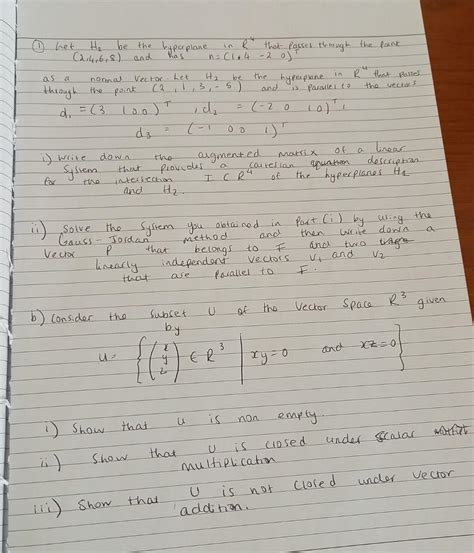 ① Let H₂ be the hyperplane in R⁴ that passes through the point
(2,4,6,8) and has n=(1,4 -2 0)ᵀ
as a normal vector. Let H₂ be the hyperplane in R⁴ that passes
through the point (2, 1, 3, -5) and is parallel to the vectors
d₁ = (3 1 0 0)ᵀ, d₂ = (-2 0 1 0)ᵀ,
d₃ = (-1 0 0 1)ᵀ
i) Write down the augmented matrix of a linear
System that provides a cartesian equation description
for the intersection I ⊂ R⁴ of the hyperplanes H₁
and H₂.
ii) Solve the System you obtained in part (i) by using the
Gauss-Jordan method and then write down a
vector P that belongs to F and two
linearly independent vectors v₁ and v₂
that are parallel to F.
b) Consider the subset U of the vector space R³ given
by
U = { (x y z) ∈ R³ | xy=0 and xz=0 }
i) Show that U is non empty.
ii) Show that U is closed under scalar
multiplication
iii) Show that U is not closed under vector
addition.